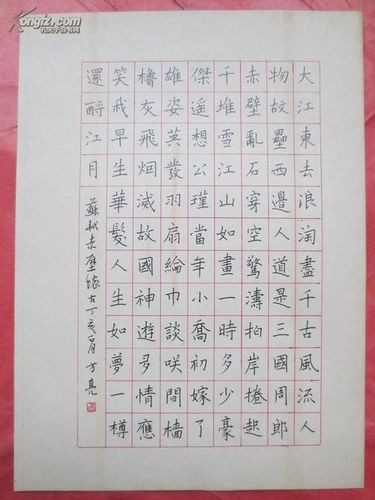 大江東去浪淘盡千古風流人
物故壘西邊人道是三國周郎
赤壁亂石穿空驚濤拍岸捲起
千堆雪江山如畫一時多少豪
傑遥想公瑾當年小喬初嫁了
雄姿英發羽扇綸巾談咲間檣
櫓灰飛烟滅故國神遊多情應
笑我早生華髮人生如夢一樽
還酹江月
蘇軾赤壁懷古丁亥 方亮